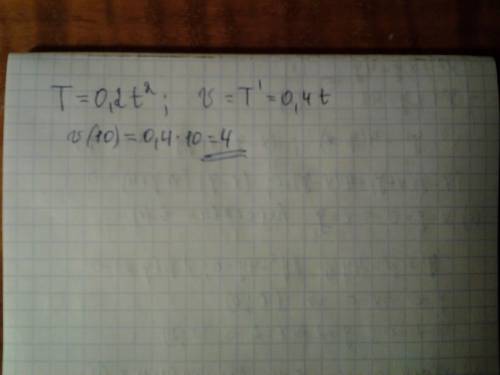 T = 0,2t²; v = T' = 0,4t
v(10) = 0,4·10 = 4